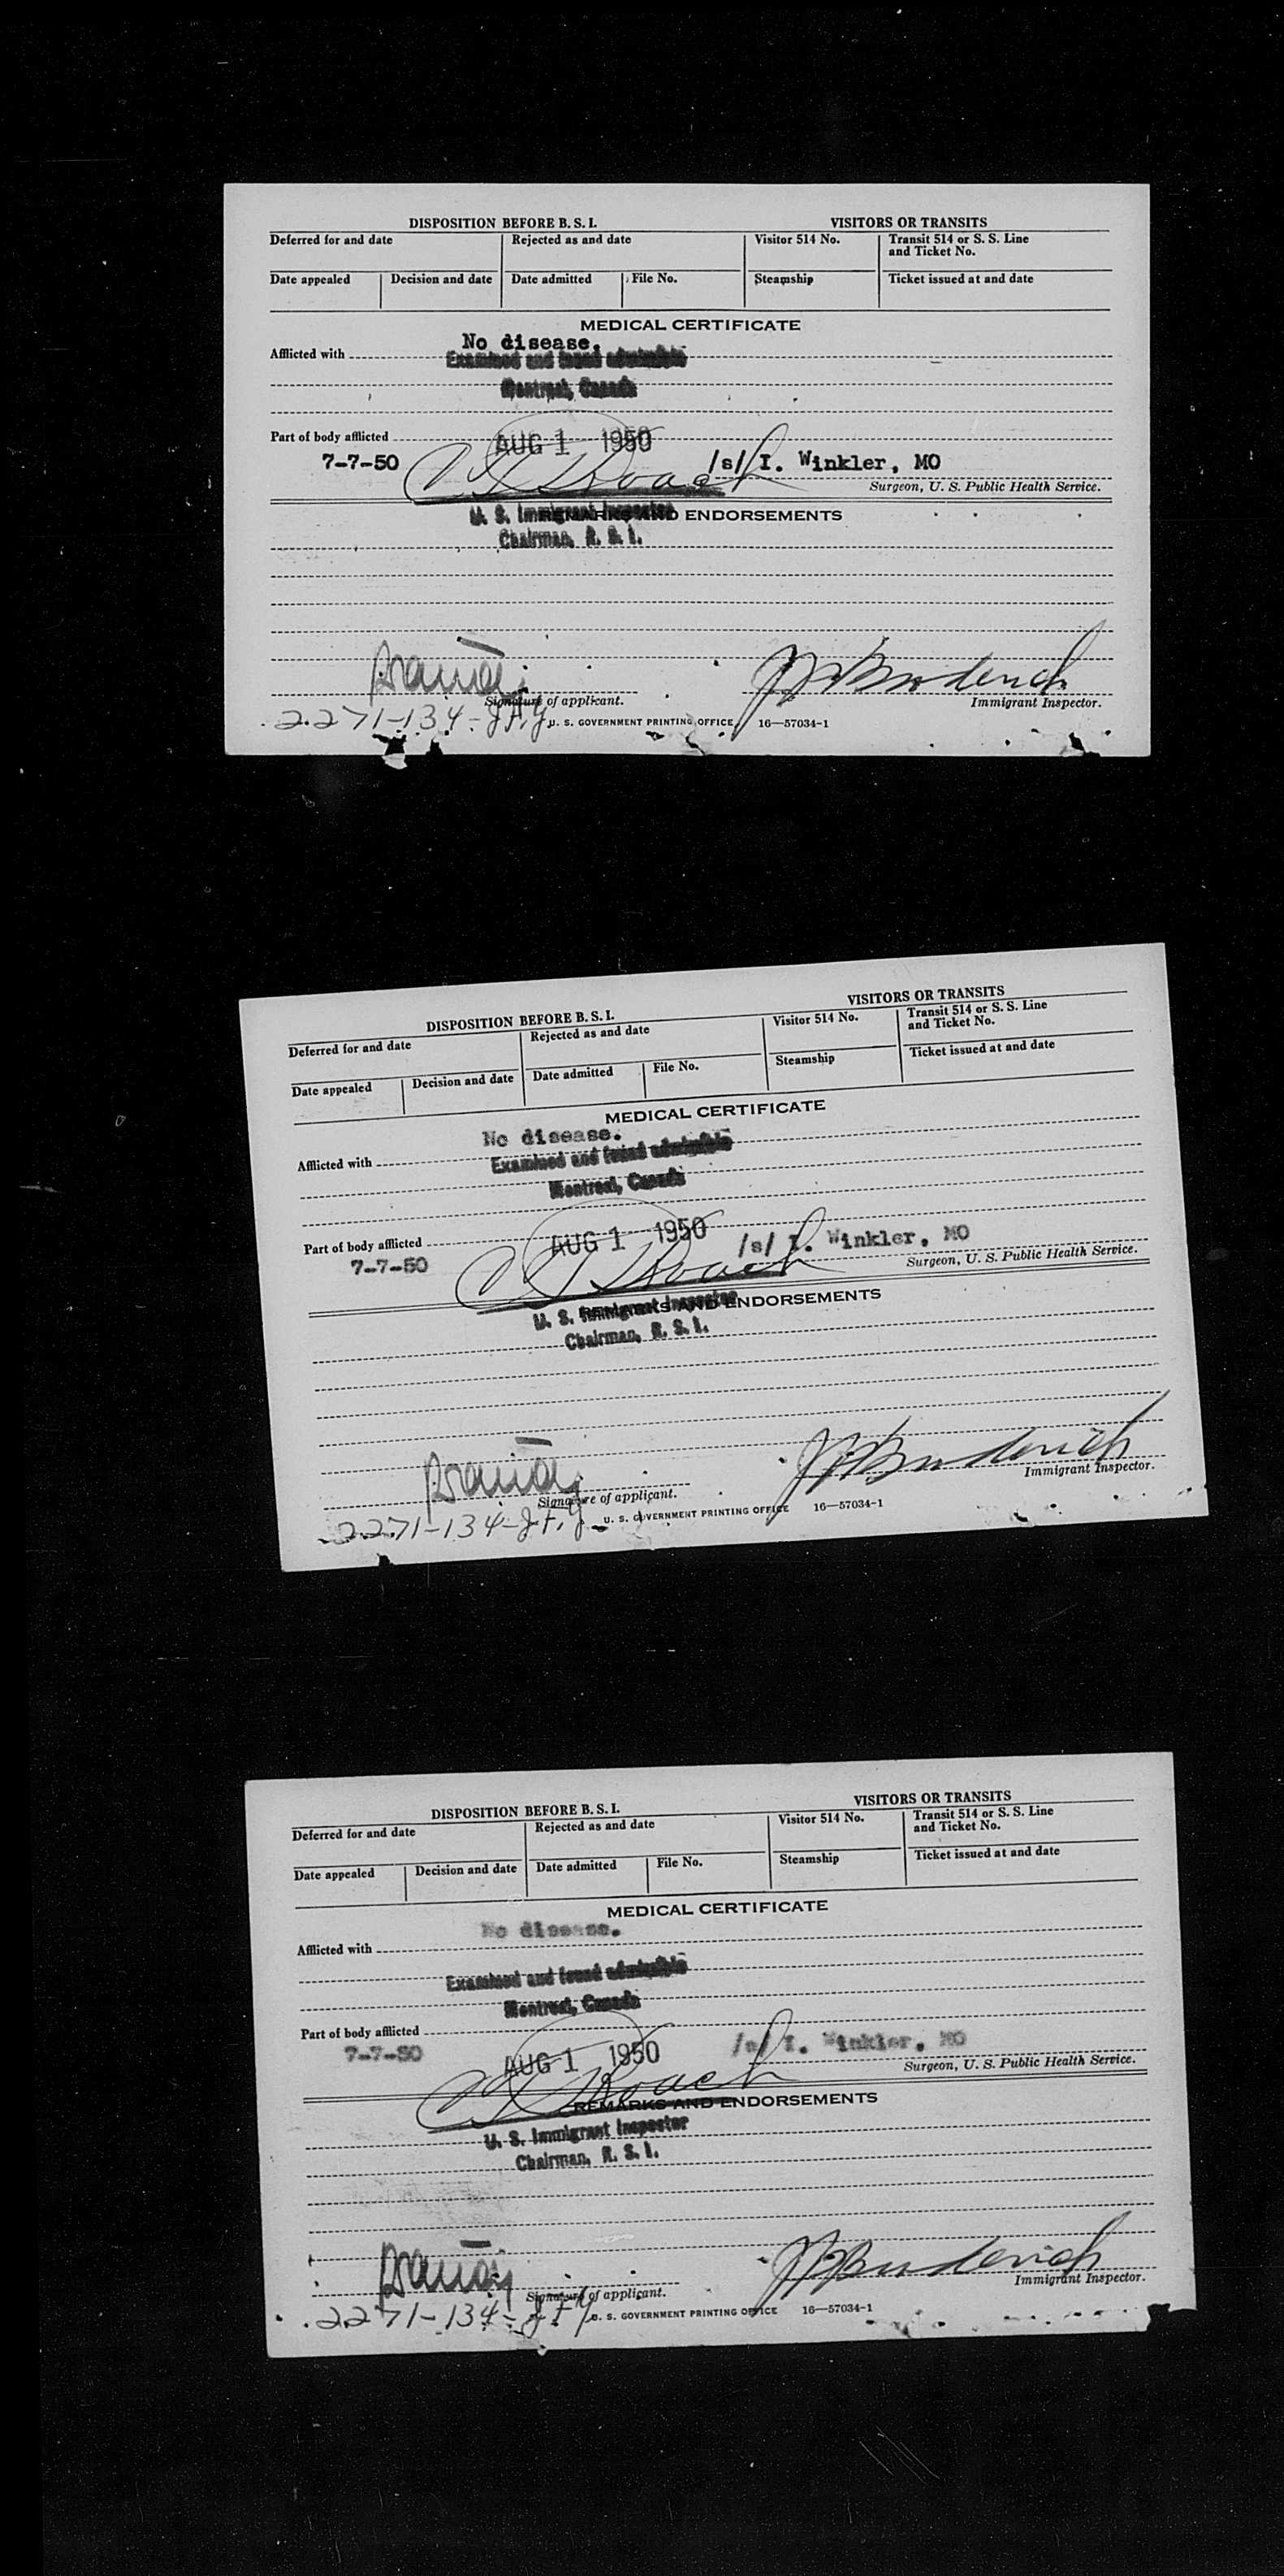 DISPOSITION BEFORE B. S. I. VISITORS OR TRANSITS
Deferred for and date Rejected as and date Visitor 514 No. Transit 514 or S. S. Line
and Ticket No.
Date appealed Decision and date Date admitted File No. Steamship Ticket issued at and date
MEDICAL CERTIFICATE
No disease.
Afflicted with
Examined and found admissible
Montreal, Canada
Part of body afflicted
AUG 1 1950
7-7-50 /s/ I. Winkler, MO
Surgeon, U. S. Public Health Service.
REMARKS AND ENDORSEMENTS
U. S. Immigrant Inspector
Chairman, B. S. I.
Signature of applicant. Immigrant Inspector.
2271-134-
U. S. GOVERNMENT PRINTING OFFICE 16—57034-1
DISPOSITION BEFORE B. S. I. VISITORS OR TRANSITS
Deferred for and date Rejected as and date Visitor 514 No. Transit 514 or S. S. Line
and Ticket No.
Date appealed Decision and date Date admitted File No. Steamship Ticket issued at and date
MEDICAL CERTIFICATE
No disease.
Afflicted with
Examined and found admissible
Montreal, Canada
Part of body afflicted
AUG 1 1950
7-7-50 /s/ I. Winkler, MO
Surgeon, U. S. Public Health Service.
REMARKS AND ENDORSEMENTS
U. S. Immigrant Inspector
Chairman, B. S. I.
Signature of applicant. Immigrant Inspector.
2271-134-
U. S. GOVERNMENT PRINTING OFFICE 16—57034-1
DISPOSITION BEFORE B. S. I. VISITORS OR TRANSITS
Deferred for and date Rejected as and date Visitor 514 No. Transit 514 or S. S. Line
and Ticket No.
Date appealed Decision and date Date admitted File No. Steamship Ticket issued at and date
MEDICAL CERTIFICATE
No disease.
Afflicted with
Examined and found admissible
Montreal, Canada
Part of body afflicted
7-7-50 AUG 1 1950 /s/ I. Winkler, MO
Surgeon, U. S. Public Health Service.
REMARKS AND ENDORSEMENTS
U. S. Immigrant Inspector
Chairman, B. S. I.
Signature of applicant. Immigrant Inspector.
2271-134-
U. S. GOVERNMENT PRINTING OFFICE 16—57034-1